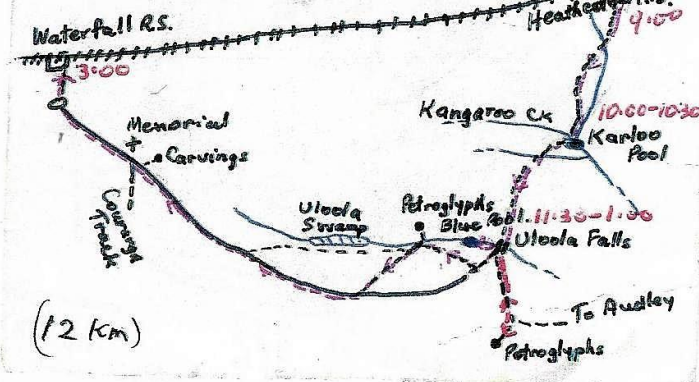 Waterfall R.S.
Heathcote R.S.
9.00
3:00
Kangaroo Ck
10.00-10:30
Karloo
Pool
Memorial
Carvings
Couranga
Track
Uloola
Swamp
Petroglyphs
Blue Pool
11.30-1.00
Uloola Falls
(12 Km)
To Audley
Petroglyphs